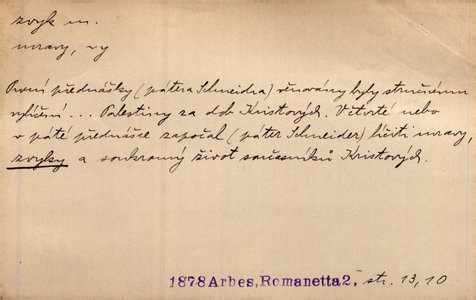 zvyk m.
mravy, -y
První přednášky (pátera Schneidra) věnovány byly stručnému
vylíčení... Palestiny za dob Kristových. V čtvrté nebo
v páté přednášce započal (páter Schneider) líčiti mravy,
zvyky a soukromý život současníků Kristových.
1878 Arbes, Romanetta 2, str. 13, 10